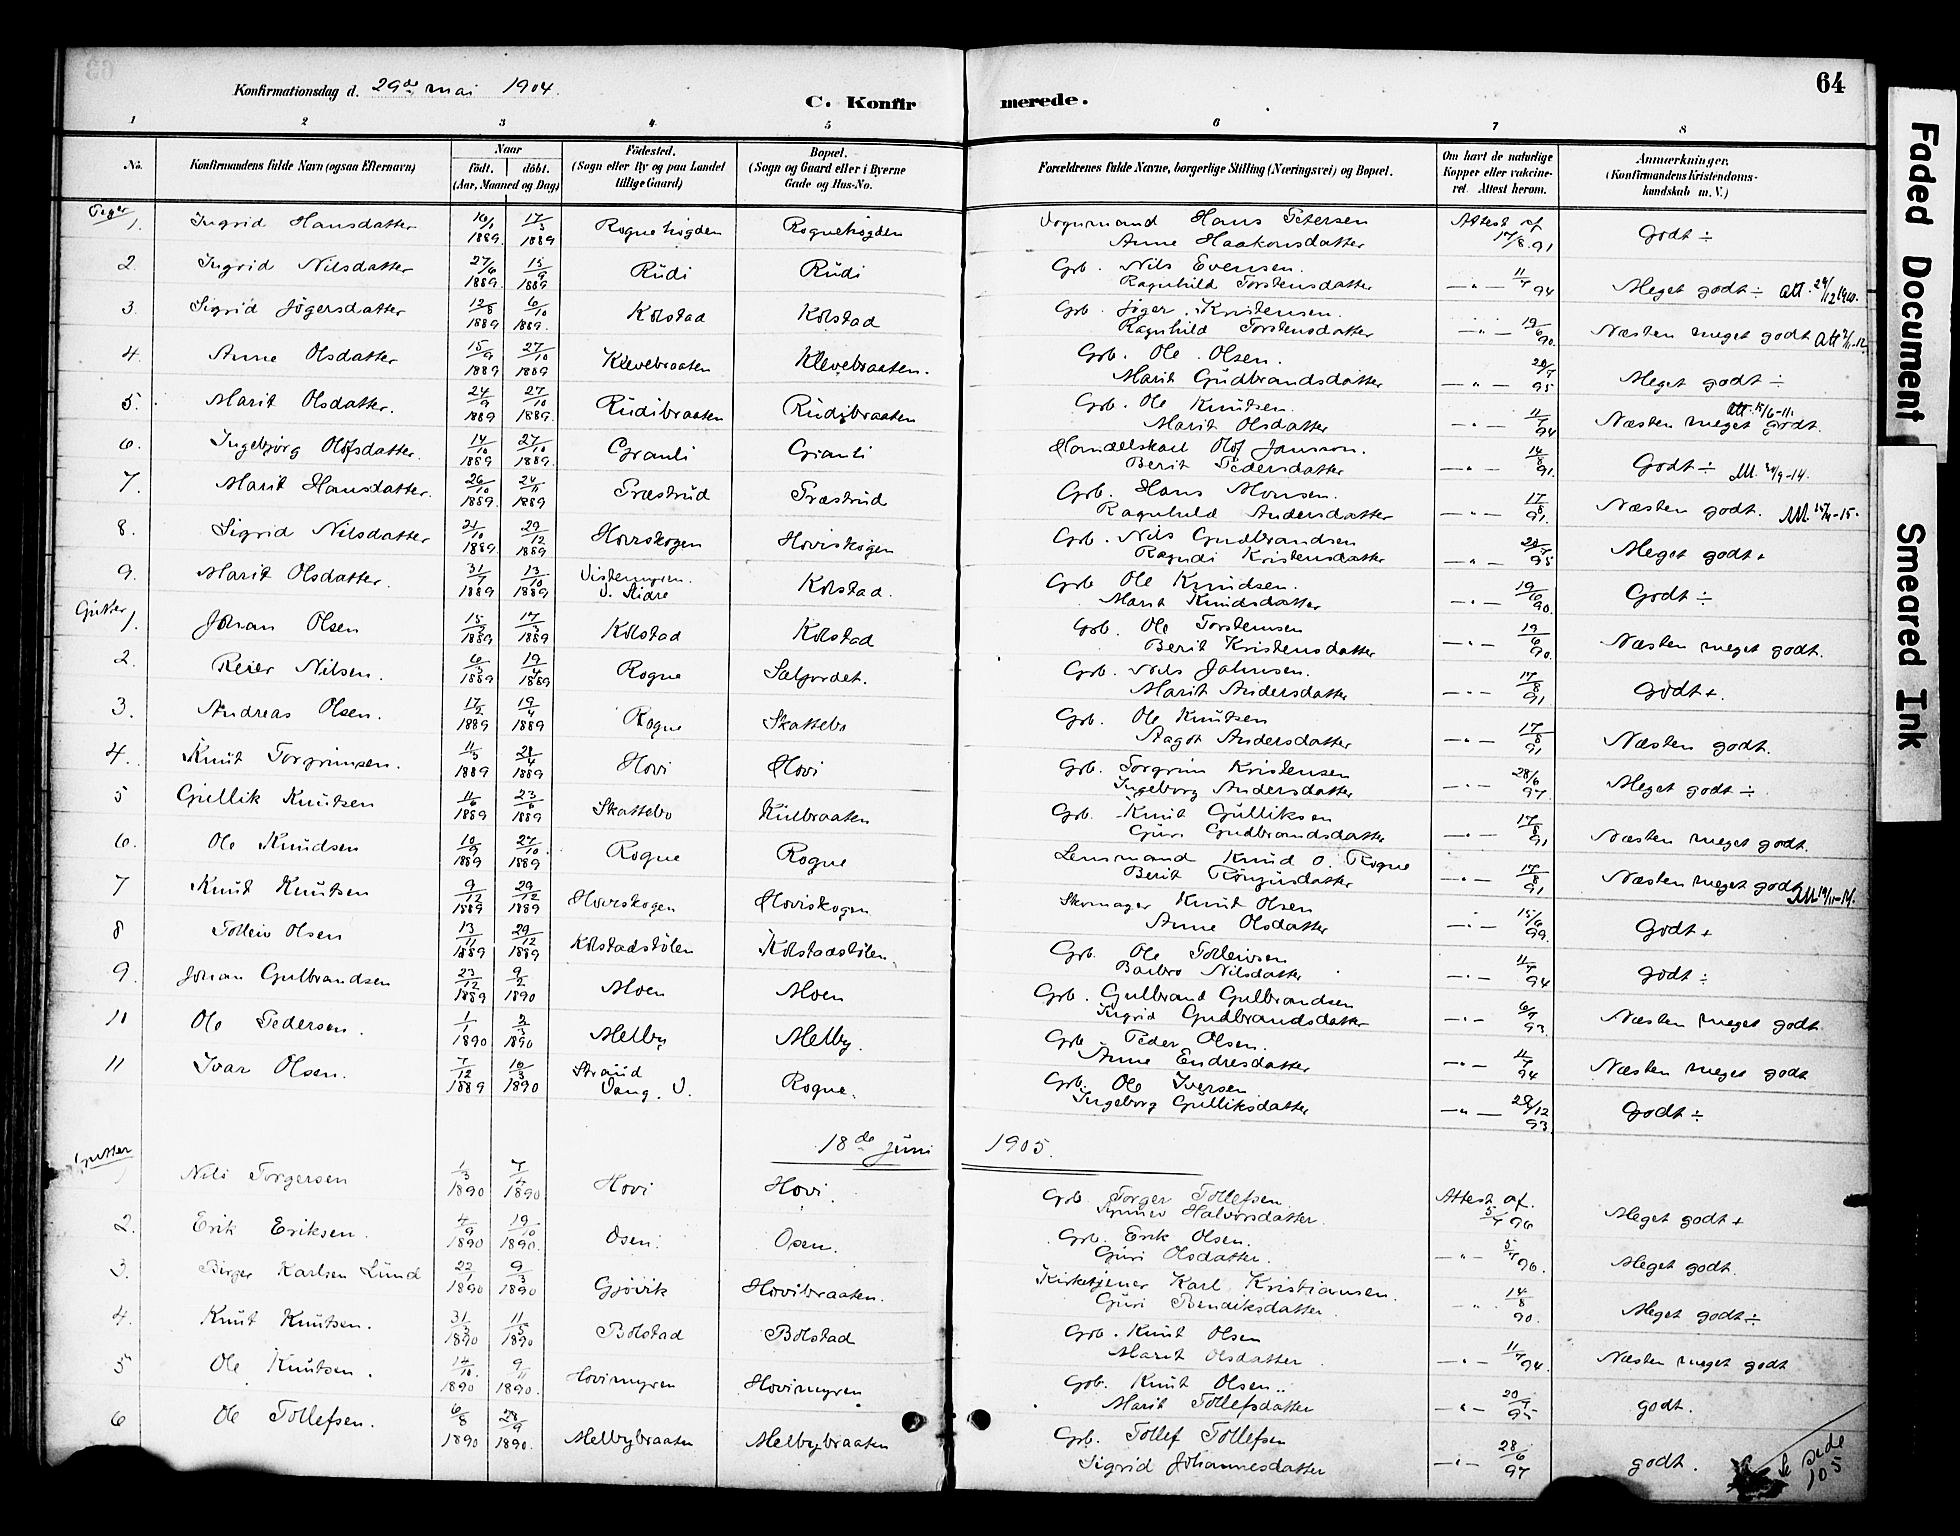 Konfirmationsdag d. 29de mai 1904.
C. Konfirmerede.
64
1 2 3 4 5 6 7 8
No. Konfirmandens fulde Navn (ogsaa Efternavn) Naar födt. döbt. (Aar, Maaned og Dag) Födested. (Sogn eller By og paa Landet tillige Gaard) Bopæl. (Sogn og Gaard eller i Byerne Gade og Hus-No. Forældrenes fulde Navne, borgerlige Stilling (Næringsvei) og Bopæl. Om havt de naturlige Kopper eller vakcineret. Attest herom. Anmærkninger. (Konfirmandens Kristendomskundskab m. V.)
Piger
1. Ingrid Hansdatter 1889 17/3 1889 Rognehögden Rognehögden Hans Petersen Anne Haakonsdatter Attest af 17/8 91 Godt ÷
2. Ingrid Nilsdatter 27/6 1889 15/9 1889 Rudi Rudi Grb. Nils Evensen. Ragnhild Torstensdatter 11/7 94 Meget godt ÷ att. 29/12 1910.
3. Sigrid Jögersdatter 12/8 1889 6/10 1889. Kolstad Kolstad Grb. Jöger Kristensen. Ragnhild Torstensdatter 19/6 90. Næsten meget godt
4. Anne Olsdatter 15/9 1889 27/10 1889 Klevebraaten Klevebraaten. Grb. Ole Olsen. Marit Gudbrandsdatter 95 Meget godt ÷
5. Marit Olsdatter. 24/9 1889 27/10 1889. Rudibraaten Rudibraaten Grb. Ole Knutsen. Marit Olsdatter 11/7 94 Næsten meget godt. att. 15/6-11.
6. Ingebjörg Olofsdatter. 14/10 1889 27/10 1889. Granli Granli Handelskarl Olof Jansson. Berit Pedersdatter 14/8 91. Godt ÷
7. Marit Hansdatter. 26/10 1889. 24/11 1889 Træstrud Træstrud Grb. Hans Monsen. Ragnhild Andersdatter 17/8 91. Næsten godt.
8. Sigrid Nilsdatter 21/10 1889 29/12 1889 Hoviskogen Hoviskogen Grb. Nils Gudbrandsen Ragndi Kristensdatter 95 Meget godt +
9. Marit Olsdatter. 31/7 1889 13/10 1889 V. Slidre Kolstad. Grb Ole Knudsen. Marit Knudsdatter 90. Godt ÷
Gutter
1. Johan Olsen 1889 17/3 1889 Kolstad Kolstad Grb. Ole Torstensen Berit Kristensdatter 19/6 90. Næsten meget godt.
2. Reier Nilsen. 6/3 1889 19/4 1889 Rogne Sælfordet. Grb. Nils Johnsen. Marit Andersdatter 17/8 91 Godt +.
3. Andreas Olsen. 17/2 1889 19/4 1889 Rogne Skattebo Grb. Ole Knutsen Aagot Andersdatter 17/8 91 Næsten godt.
4. Knut Torgrimsen. 11/3 1889 28/4 1889 Hovi Hovi Grb. Torgrim Kristensen Ingeborg Andersdatter 28/6 97. Meget godt ÷
5 Gullik Knutsen 11/6 1889 23/6 1889 Skattebo Kulbraaten Grb. Knut Gulliksen Guri Gudbrandsdatter 17/8 91 Næsten meget godt.
6. Ole Knudsen 10/9 1889 27/10. 1889 Rogne Rogne Lensmand Knud O. Rogne Berit 17/8 91 Næsten meget godt
7 Knut Knutsen 9/12 1889 29/12 1889 Hoviskogen Hoviskogen Skomager Knut Olsen Anne Olsdatter 15/6 99. Godt +
8 Tolleiv Olsen 13/11 1889 29/12 1889 Kolstadstölen Kolstadstölen. Grb. Ole Tolleivsen Barbro Nilsdatter 11/7 94 godt ÷
9. Johan Gulbrandsen 23/12 1889 9/2 1890 Moen Moen Grb. Gulbrand Gulbrandsen Ingrid Gudbrandsdatter 93. Næsten meget godt
10 Ole Pedersen. 1/1 1890 2/3 1890 Melby Melby. Grb Peder Olsen. Anne Endresdatter 11/7 94 Næsten meget godt
11 Ivar Olsen. 7/12 1889 16/3 1890 Strand Vang. V. Rogne. Grb. Ole Iversen Ingeborg Gulliksdatter 28/12 93. Godt ÷
18de juni 1905.
Gutter
Nils Torgersen 1/3 1890 7/4 1890 Hovi Hovi. Grb. Torger Tollefsen Synnev Halvorsdatter. Attest af. 5/7 96 Meget godt +
2. Erik Eriksen. 4/9 1890 19/10 1890. Osen. Osen. Grb. Erik Olsen. Guri Olsdatter. 5/7 96. Meget godt.
3. Birger Karlsen Lund 22/1 1890 9/3 1890 Gjövik Hovibraaten. Kirketjener Karl Kristiansen. Guri Bendiksdatter. 14/8 90. Meget godt ÷
4. Knut Knutsen. 31/3 1890 11/5 1890 Bolstad Bolstad Grb. Knut Olsen Marit Olsdatter 11/7 94. Næsten meget godt
5 Ole Knutsen. 14/10. 1890 9/11 1890. Hovimyren Hovimyren Grb. Knut Olsen Marit Tollefsdatter 95 godt.
6 Ole Tollefsen. 6/8 1890 28/9 1890. Melbybraaten Melbybraaten Grb. Tollef Tollefsen Sigrid Johannesdatter 28/6 97 godt.
Se side 105
Faded Document
Smeared Ink